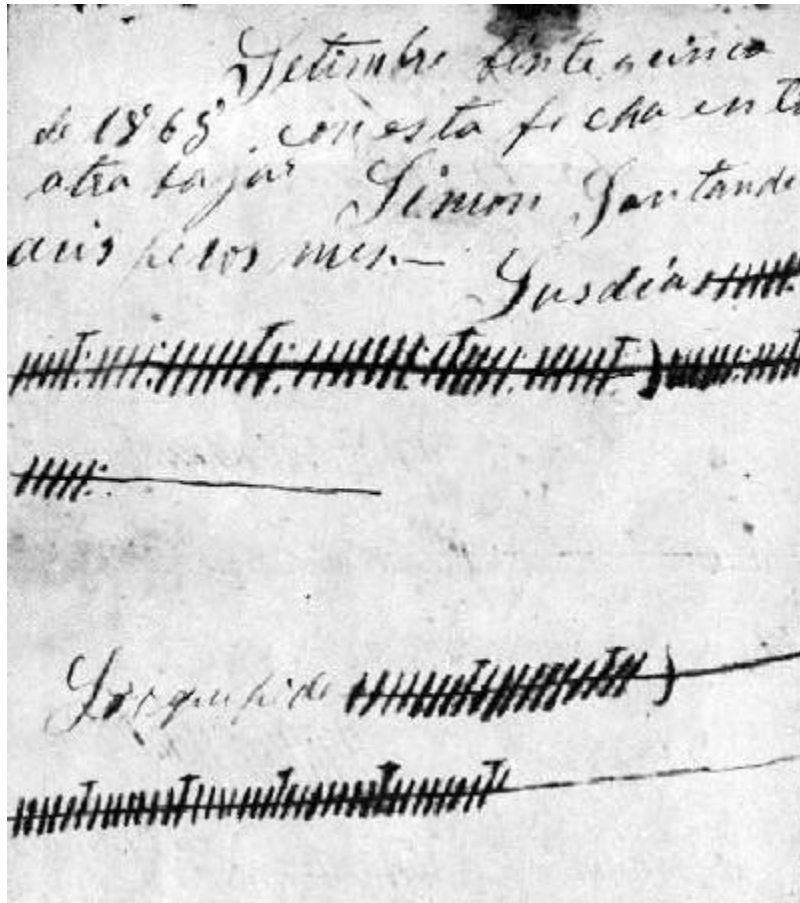 Setimbre binte y cinco
de 1868 con esta fecha en
atra bajar Simon Santande
pesos mes.—
Susdias
Los que pide